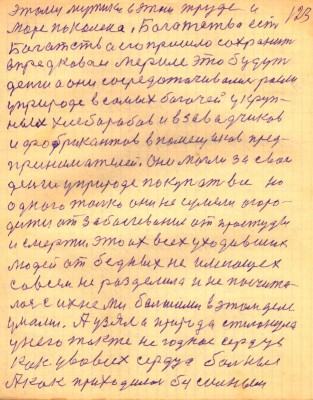 этому мужики в этом труде и 123
море по колена, Богатства ест
Богатства его пришло сохранит
впредковам мерилем это будут
денга они сосредотачивались росли
у природе в самых богачей у круп-
ных хлебарабов и в завадчиков
и фобрикантов в помещиков пред-
принимателей. Они могли за свои
денги у природе покупат все но
одного толко они не сумели огоро-
дити от заболевания от простуды
и смерти, это их всех уходивших
людей от бедных не имеющех
совсем не разделила и не посчита-
лася с ихнеми болшими в этом деле
умами. А узяла природа стиснула
у него также не годное сердце
как у во всех сердца болныи
А как приходилос бы сыльным